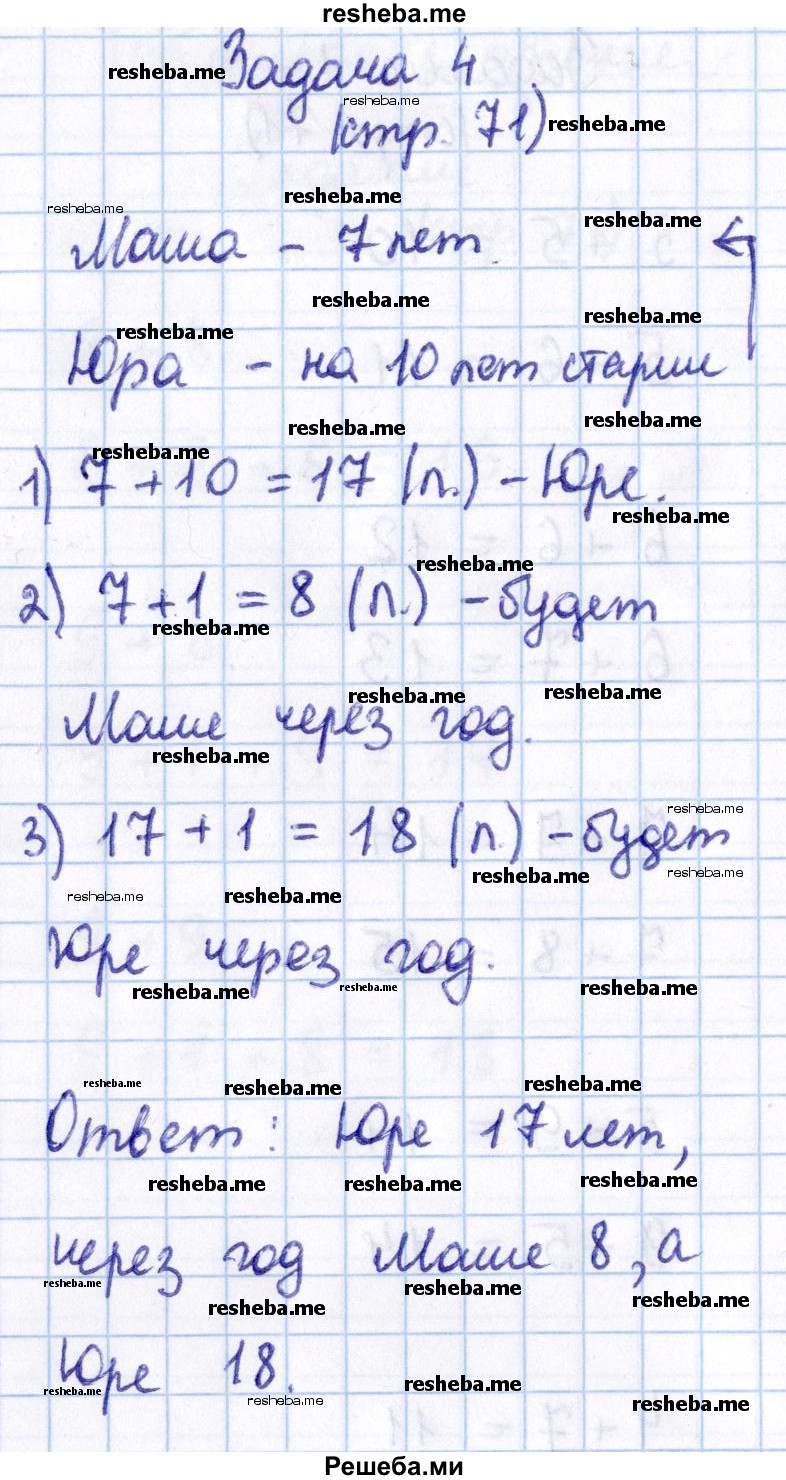 resheba.me
Задача 4
(стр. 71)
Маша – 7 лет.
Юра – на 10 лет старше
1) 7 + 10 = 17 (л.) – Юре.
2) 7 + 1 = 8 (л.) – будет
Маше через год.
3) 17 + 1 = 18 (л.) – будет
Юре через год.
Ответ: Юре 17 лет,
через год Маше 8, а
Юре 18.
Решеба.ми